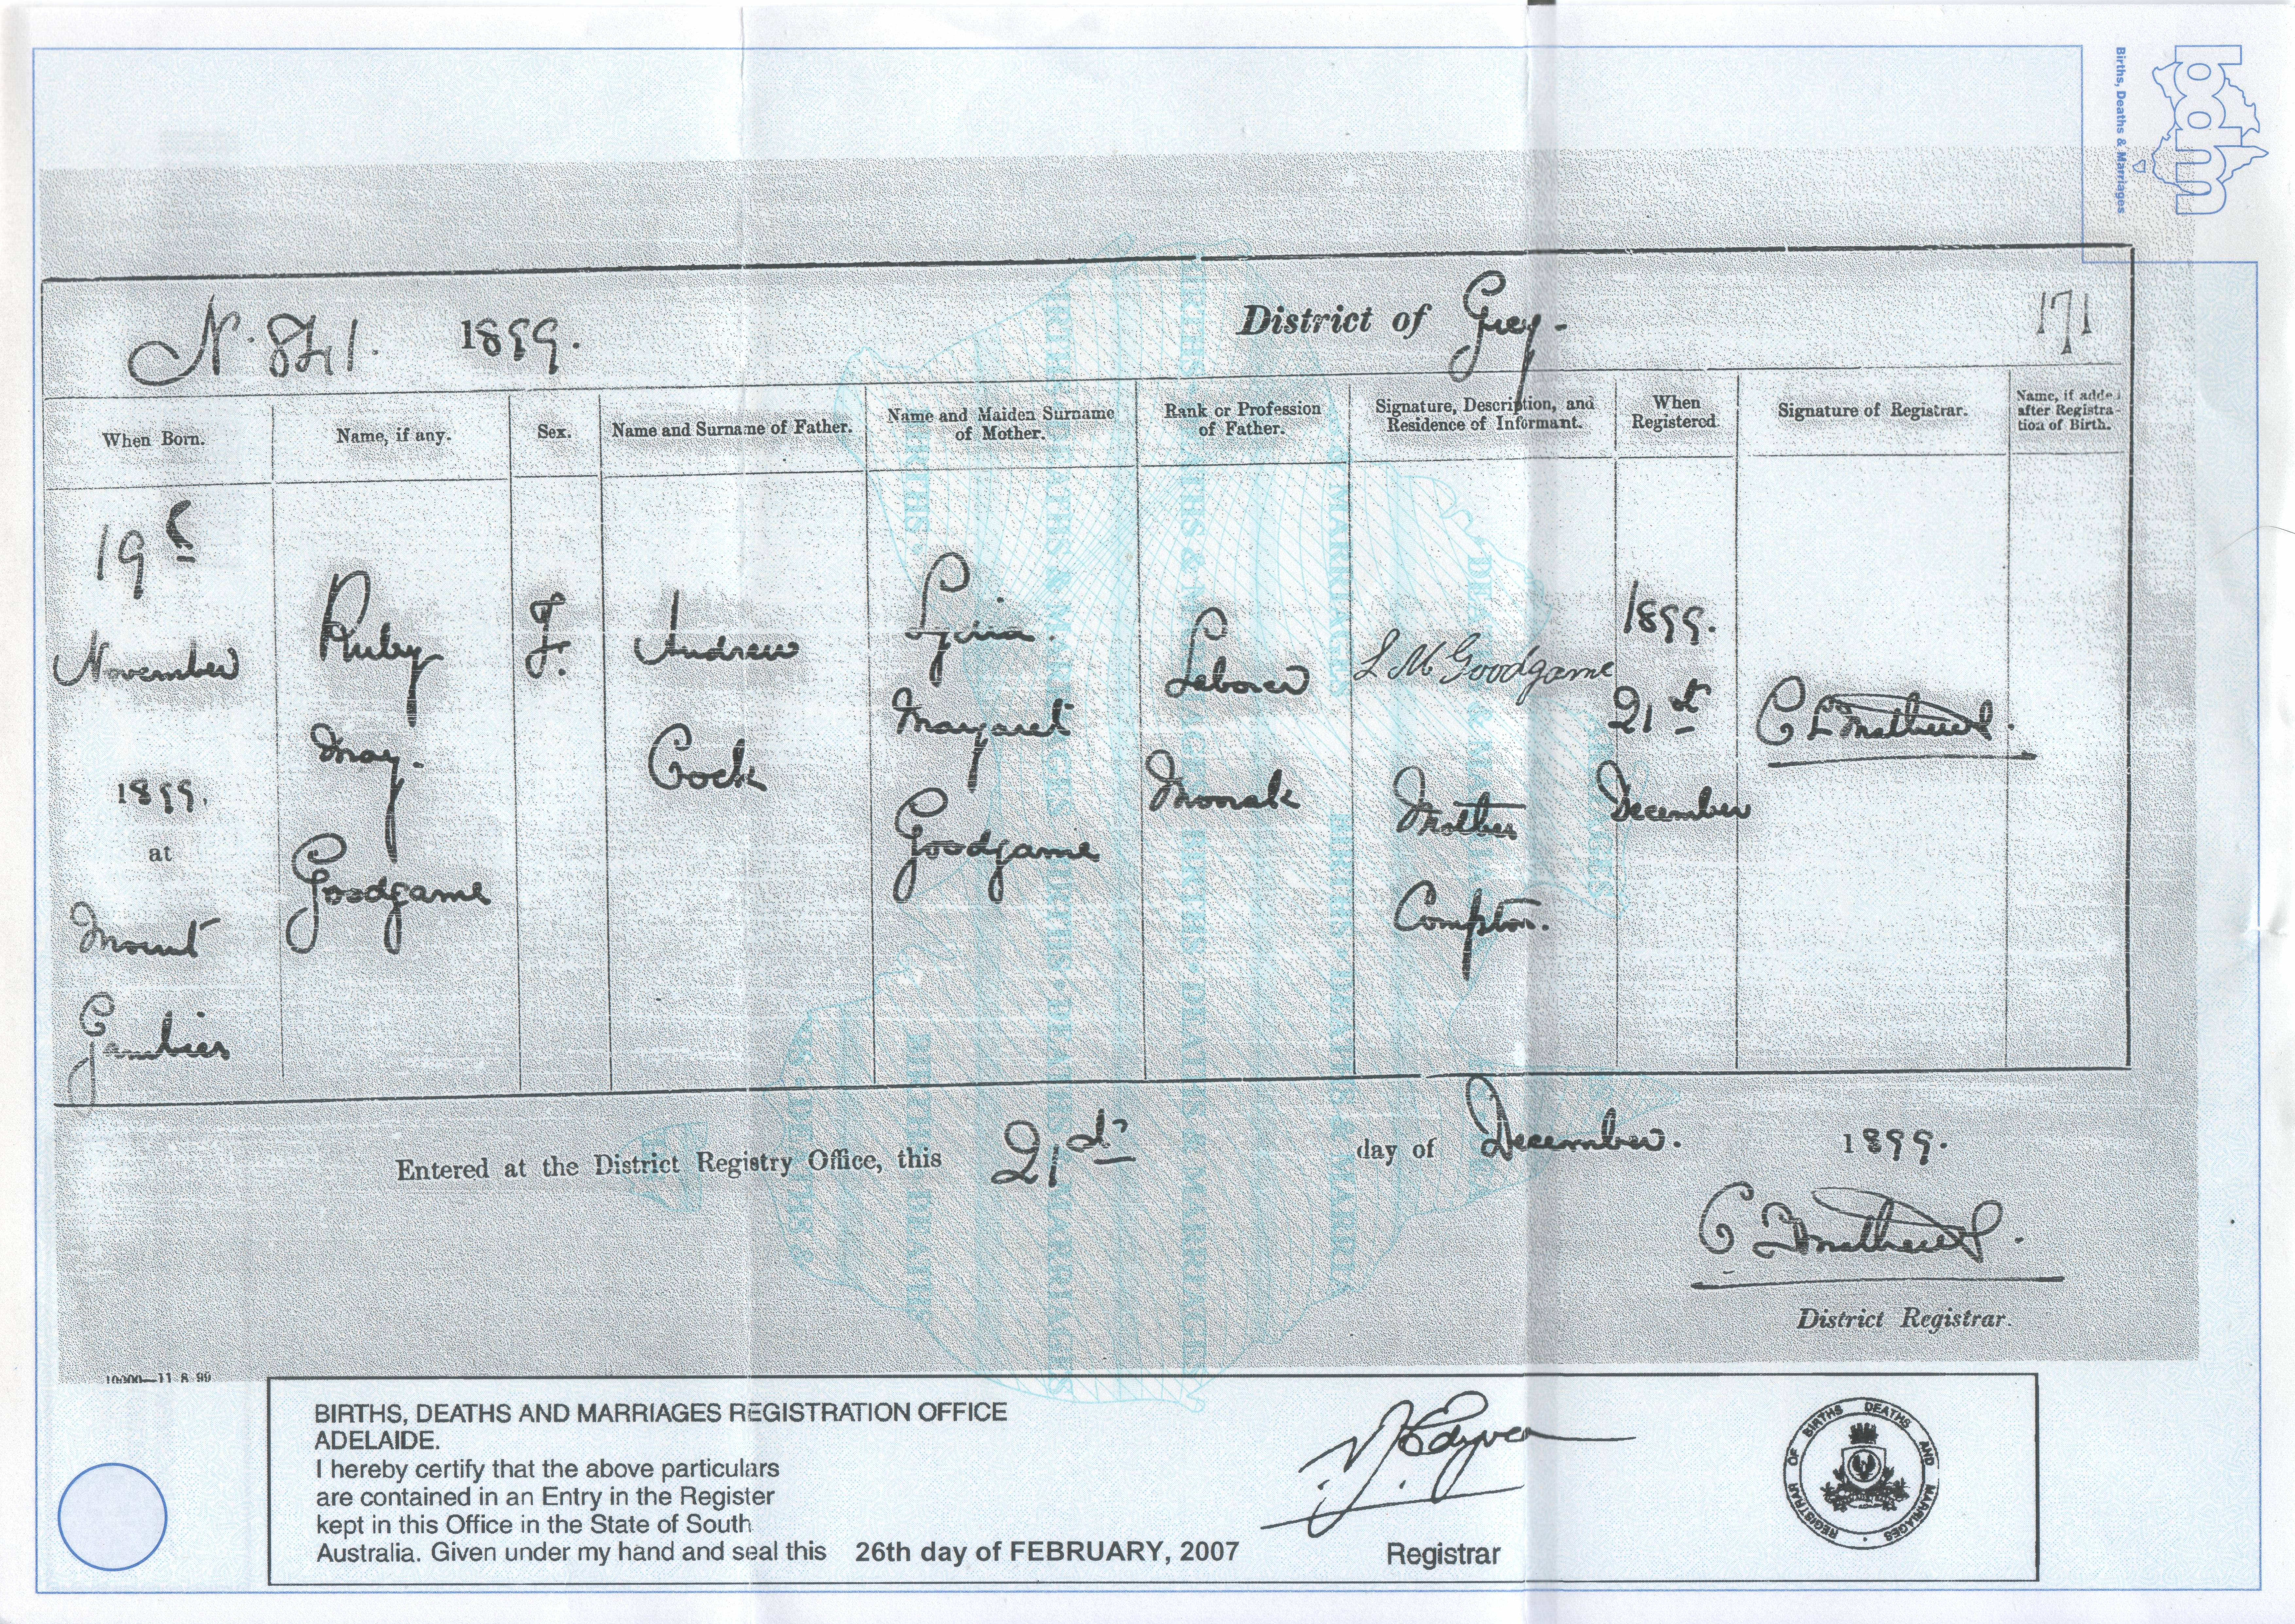 bdm
Births, Deaths & Marriages
N. 841. 1899.
District of Grey.
171
When Born.
Name, if any.
Sex.
Name and Surname of Father.
Name and Maiden Surname
of Mother.
Rank or Profession
of Father.
Signature, Description, and
Residence of Informant.
When
Registered.
Signature of Registrar.
Name, if added
after Registra-
tion of Birth.
19
November
1899.
at
Mount
Gambier
Ruby
May.
Goodgame
F.
Andrew
Cock
Lydia.
Margaret
Goodgame
Laborer
Monak
L M Goodgame
Mother
Compton.
1899.
21st
December
Entered at the District Registry Office, this 21st day of December. 1899.
District Registrar.
10000—11 8 99
BIRTHS, DEATHS AND MARRIAGES REGISTRATION OFFICE
ADELAIDE.
I hereby certify that the above particulars
are contained in an Entry in the Register
kept in this Office in the State of South
Australia. Given under my hand and seal this 26th day of FEBRUARY, 2007
Registrar
REGISTRAR OF BIRTHS DEATHS AND MARRIAGES